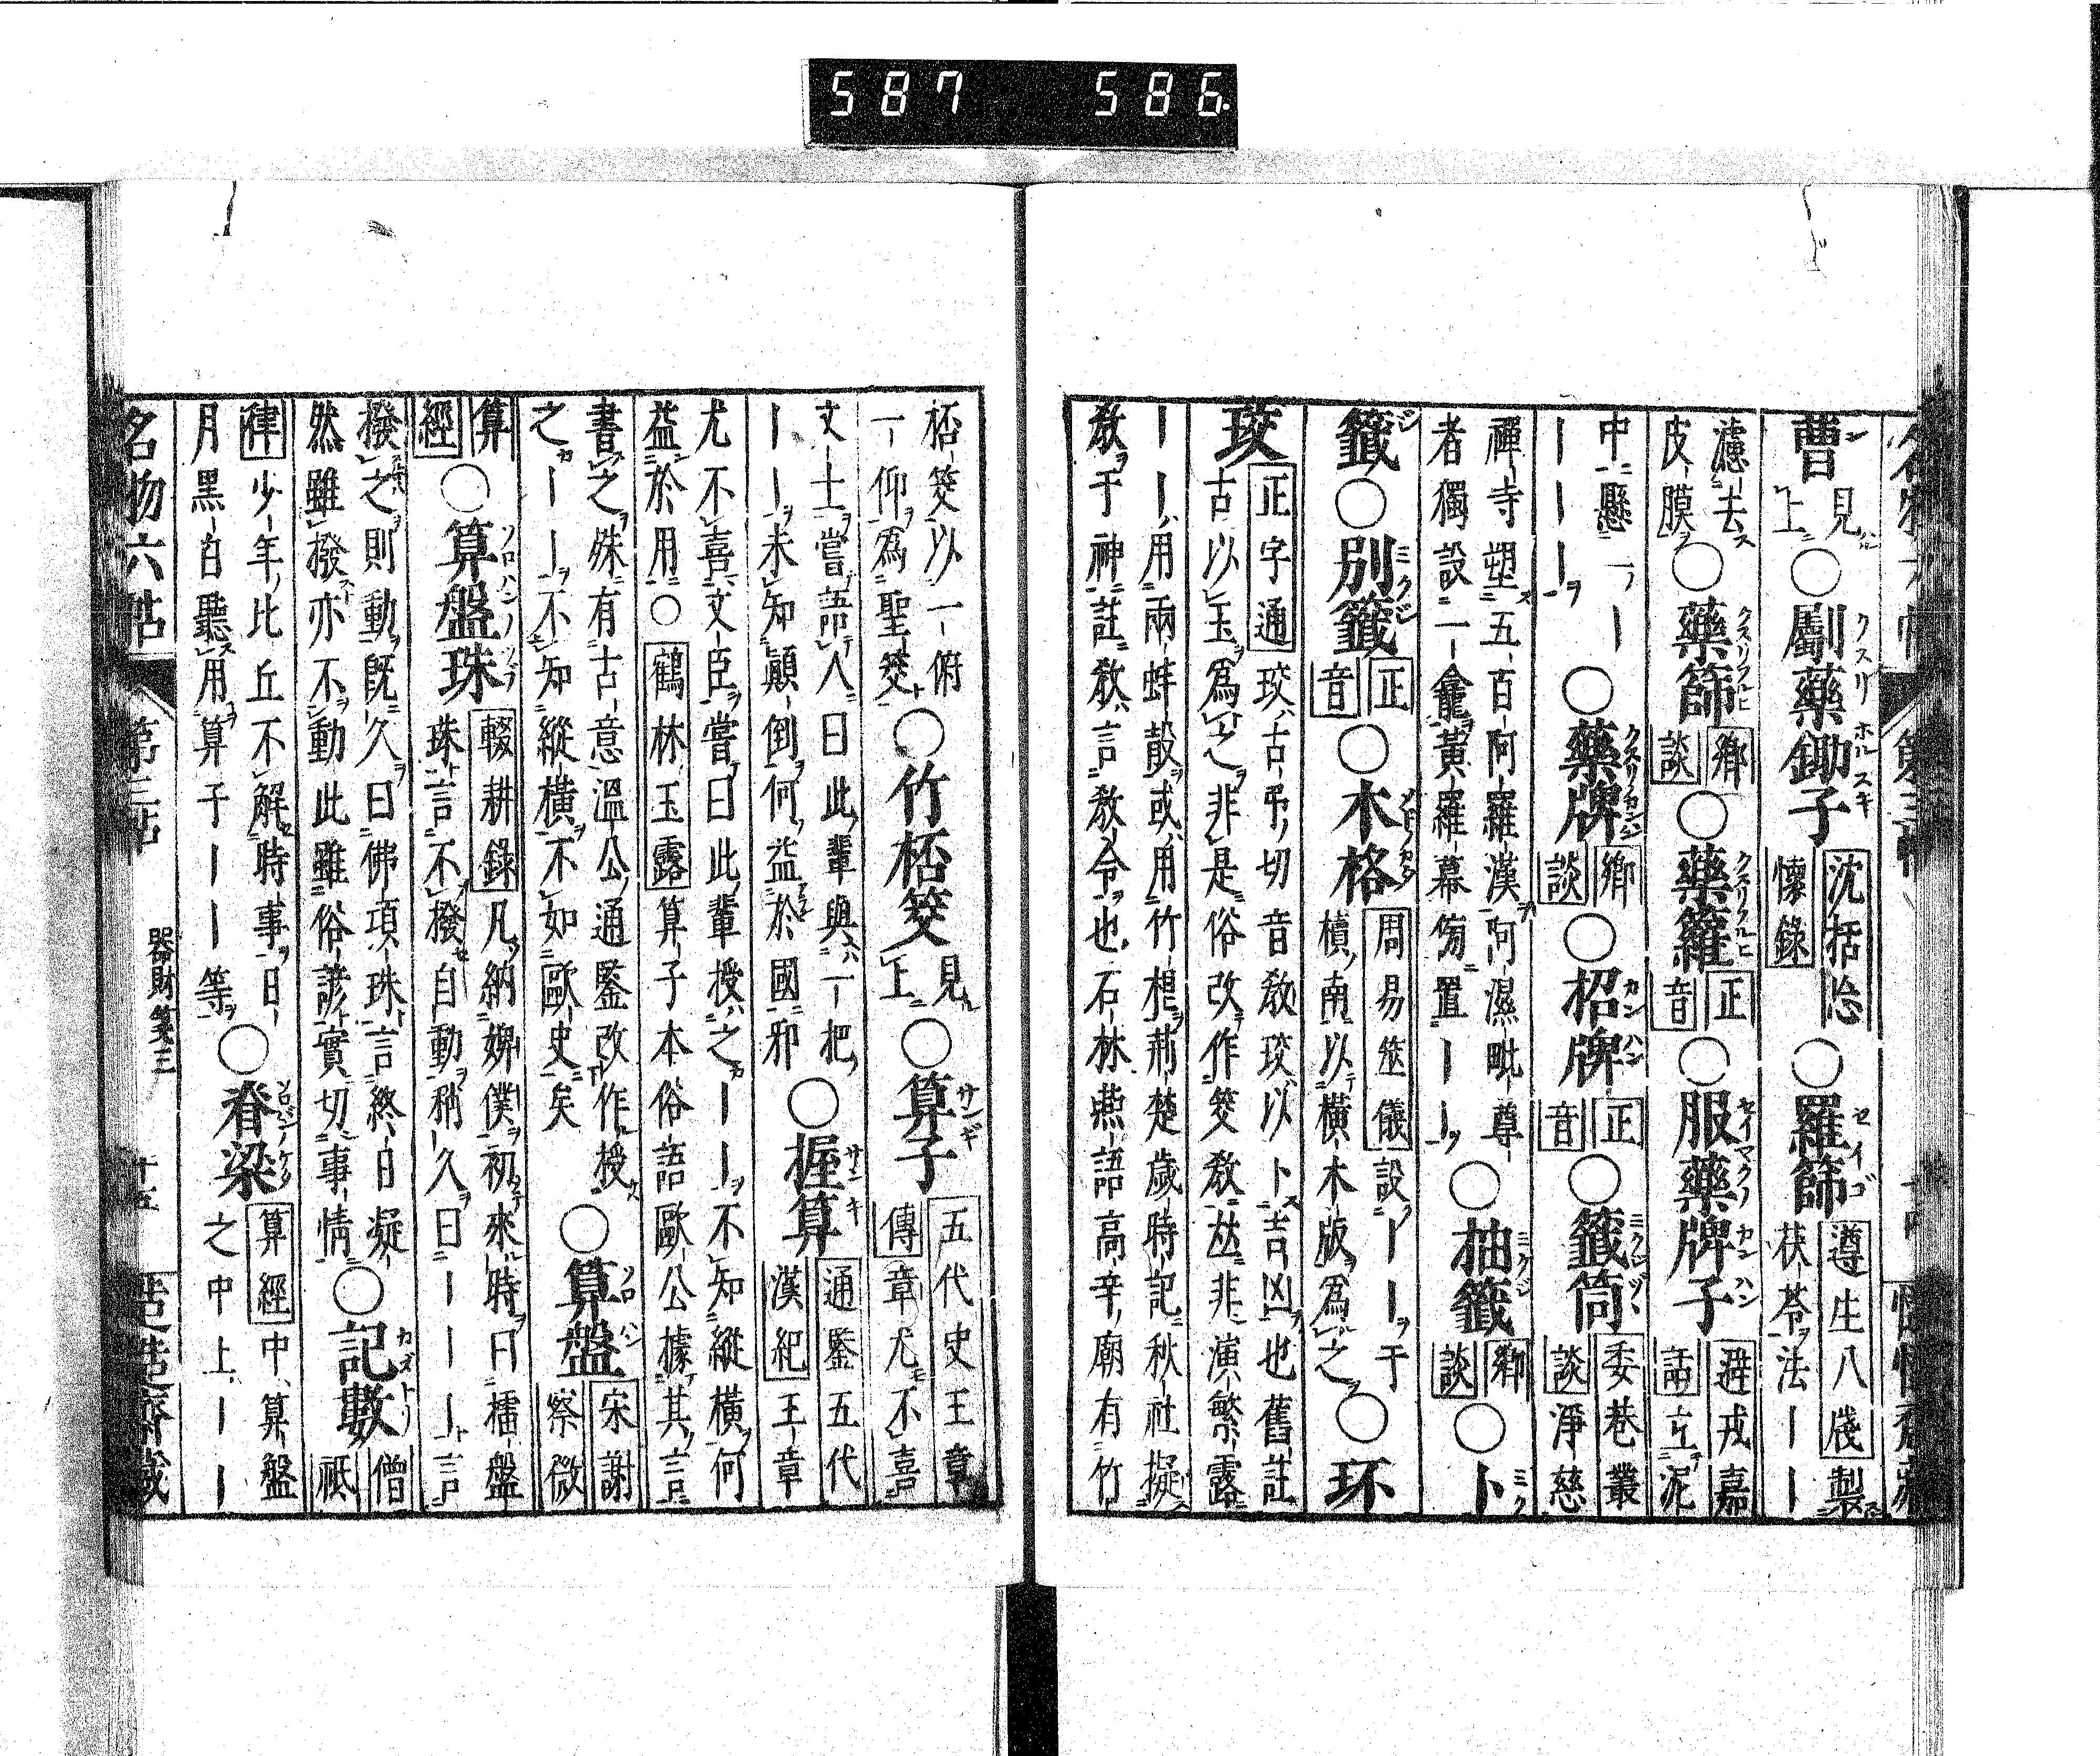 曹 見上 ○劚藥鋤子 沈括忩懷錄 ○羅篩 遵生八牋製茯苓法｜｜
濾去皮膜 ○藥篩 鄉談 ○藥籮 正音 ○服藥牌子 避戎嘉話立泥
中懸一｜｜｜｜ ○藥牌 鄉談 ○招牌 正音 ○籤筒 委巷叢談淨慈
禪寺塑五百阿羅漢阿濕毗尊者獨設一龕黃羅幕傍置｜｜ ○抽籤 鄉談 ○卜
籤 ○別籤 正音 ○木格 周易筮儀設｜｜于櫝南以橫木版為之 ○环
珓 正字通珓古弔切音敎珓以卜吉凶也舊註古以玉為之非是俗改作筊敎𠀤非演繁露
｜｜用兩蚌殼或用竹根荊楚歲時記秋社擬敎于神註敎言敎令也石林燕語高辛廟有竹
桮筊以一俯一仰為聖筊 ○竹桮筊 見上 ○算子 五代史王章傳章尤不喜
文士嘗語人曰此輩與一把｜｜未知顛倒何益於國邪 ○握算 通鑒五代漢紀王章
尤不喜文臣嘗曰此輩授之｜｜不知縱橫何益於用○鶴林玉露算子本俗語歐公據其言
書之殊有古意溫公通鑒改作授之｜｜不知縱橫不如歐史矣 ○算盤 宋謝察微
算經 ○算盤珠 輟耕錄凡納婢僕初來時曰擂盤珠言不撥自動稍久曰｜｜｜言
撥之則動既久曰佛項珠言終日凝然雖撥亦不動此雖俗諺實切事情 ○記數 僧祇
律少年比丘不解時事日月黑白聽用算子｜｜等 ○脊梁 算經中算盤之中上｜｜
名物六帖 第三帖 器財箋三 十五
587 586